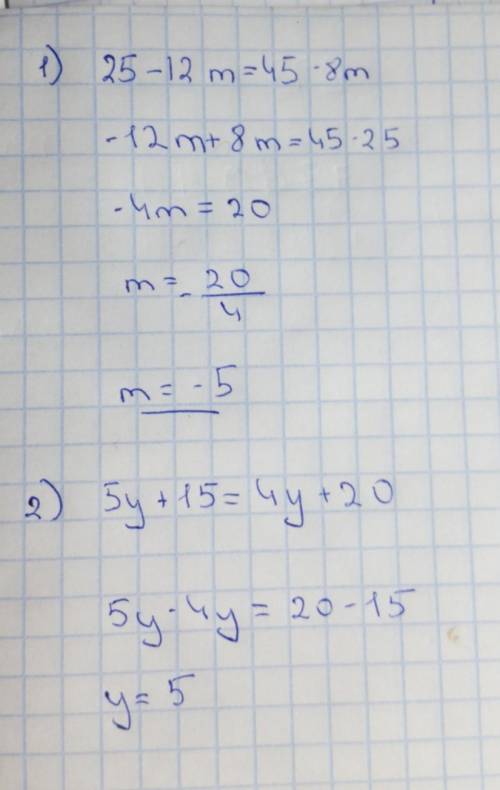 1) 25 - 12 m = 45 - 8m
- 12 m + 8 m = 45 - 25
- 4m = 20
m = - 20/4
m = - 5
2) 5y + 15 = 4y + 20
5y - 4y = 20 - 15
y = 5